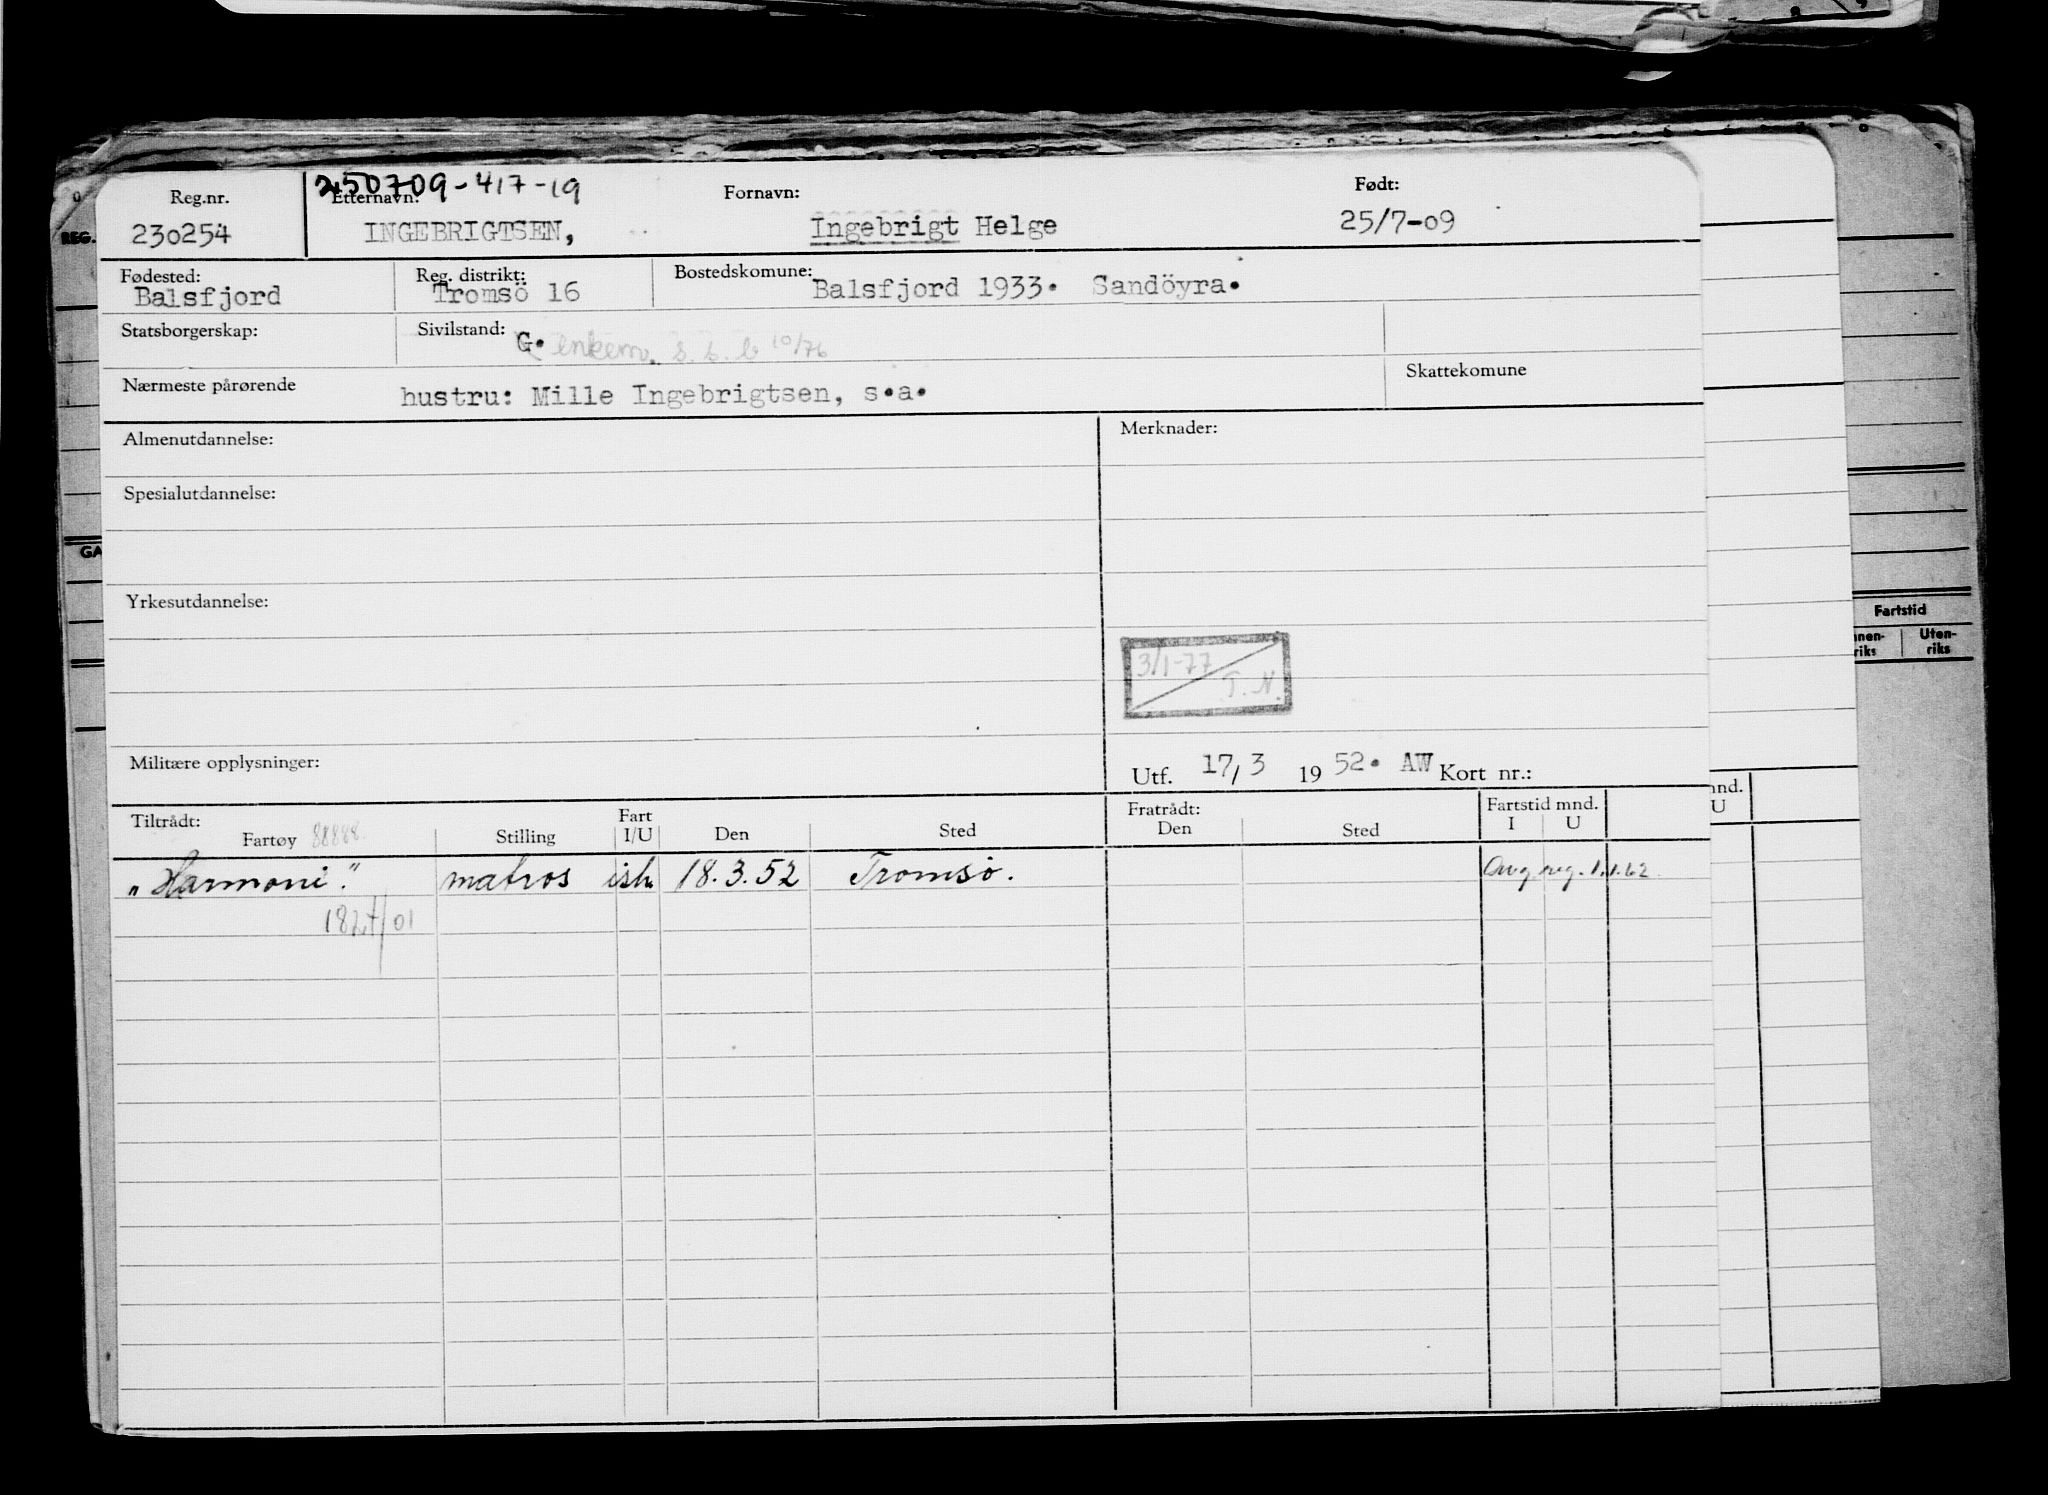 250709-417-19
Reg.nr. Etternavn: Fornavn: Født:
230254 INGEBRIGTSEN, Ingebrigt Helge 25/7-09
REG.
Fødested: Reg. distrikt: Bostedskomune:
Balsfjord Tromsö 16 Balsfjord 1933. Sandöyra.
Statsborgerskap: Sivilstand: G. enkem. 10/76
Nærmeste pårørende hustru: Mille Ingebrigtsen, s.a. Skattekomune
Almenutdannelse: Merknader:
Spesialutdannelse:
GA
Yrkesutdannelse:
Fartstid
Uten-
riks riks
3/1-77
T.N.
Militære opplysninger: Utf. 17/3 1952. AW Kort nr.:
Tiltrådt: Fart Fratrådt: Fartstid mnd. mnd.
Fartøy 88888 Stilling I/U Den Sted Den Sted I U U
"Harmoni". matros ish 18.3.52 Tromsö. Avg. reg. 1.1.62
1827/01